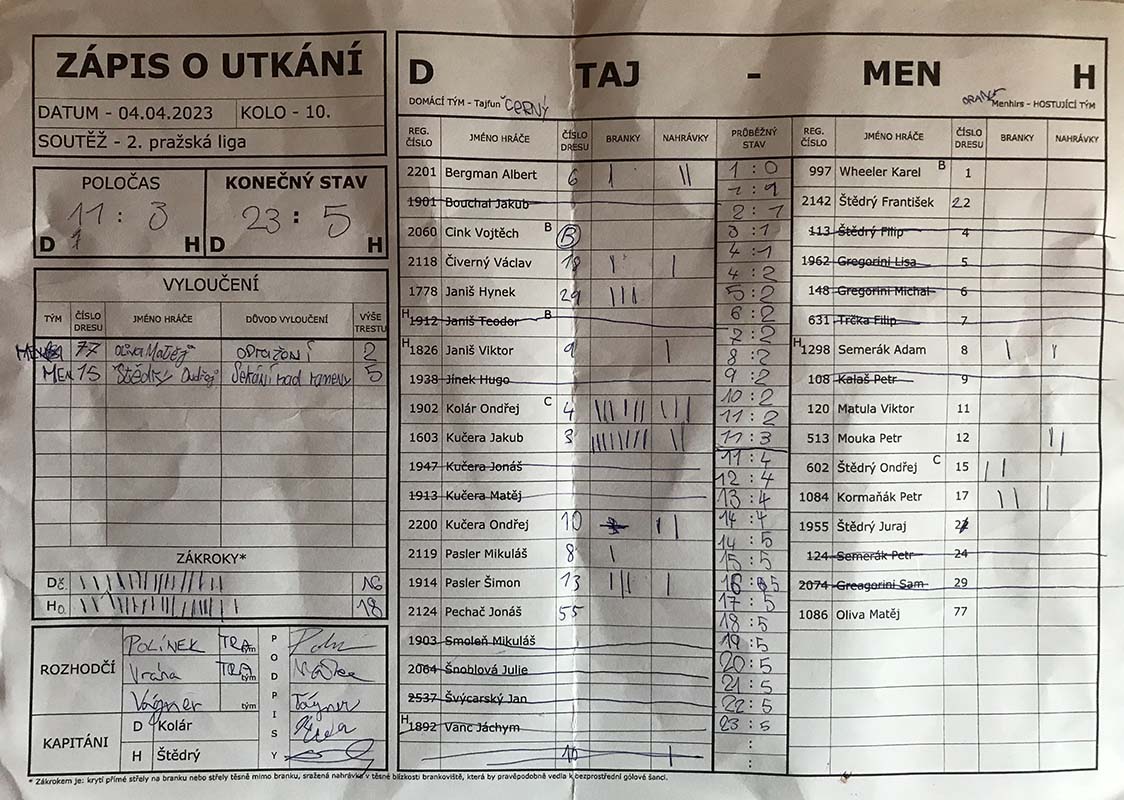 ZÁPIS O UTKÁNÍ
DATUM - 04.04.2023 KOLO - 10.
SOUTĚŽ - 2. pražská liga
POLOČAS KONEČNÝ STAV
11 : 3 23 : 5
D H D H
VYLOUČENÍ
TÝM ČÍSLO DRESU JMÉNO HRÁČE DŮVOD VYLOUČENÍ VÝŠE TRESTU
MEN 77 Oliva Matěj 2
MEN 15 Štědrý Ondřej Sekání nad rameny 5
ZÁKROKY*
Dč.
Ho. 18
ROZHODČÍ
POLÍNEK TRA tým
Vrána TRA tým
Vágner tým
PODPISY
KAPITÁNI
D Kolár
H Štědrý
D TAJ - MEN H
DOMÁCÍ TÝM - Tajfun ČERNÝ Menhirs - HOSTUJÍCÍ TÝM
REG. ČÍSLO JMÉNO HRÁČE ČÍSLO DRESU BRANKY NAHRÁVKY PRŮBĚŽNÝ STAV REG. ČÍSLO JMÉNO HRÁČE ČÍSLO DRESU BRANKY NAHRÁVKY
2201 Bergman Albert 6 | ||
1901 Bouchal Jakub
2060 Cink Vojtěch B B
2118 Čiverný Václav 18 || |
1778 Janiš Hynek 29 |||
H 1912 Janiš Teodor B
H 1826 Janiš Viktor 9 |
1938 Jínek Hugo
1902 Kolár Ondřej C 4
1603 Kučera Jakub 3
1947 Kučera Jonáš
1913 Kučera Matěj
2200 Kučera Ondřej 10 ||
2119 Pasler Mikuláš 8 |
1914 Pasler Šimon 13 ||| |
2124 Pechač Jonáš 55
1903 Smoleň Mikuláš
2064 Šnoblová Julie
2537 Švýcarský Jan
H 1892 Vanc Jáchym
10 |
1 : 0
1 : 1
2 : 1
3 : 1
4 : 1
4 : 2
5 : 2
6 : 2
7 : 2
8 : 2
9 : 2
10 : 2
11 : 2
11 : 3
11 : 4
12 : 4
13 : 4
14 : 4
14 : 5
15 : 5
16 : 5
17 : 5
18 : 5
19 : 5
20 : 5
21 : 5
22 : 5
23 : 5
997 Wheeler Karel B 1
2142 Štědrý František 22
113 Štědrý Filip 4
1962 Gregorini Lisa 5
148 Gregorini Michal 6
631 Trčka Filip 7
H 1298 Semerák Adam 8 | |
108 Kalaš Petr 9
120 Matula Viktor 11
513 Mouka Petr 12 ||
602 Štědrý Ondřej C 15 ||
1084 Kormaňák Petr 17 || |
1955 Štědrý Juraj
124 Semerák Petr 24
2074 Greagorini Sam 29
1086 Oliva Matěj 77
* Zákrokem je: krytí přímé střely na branku nebo střely těsně mimo branku, sražená nahrávka v těsné blízkosti brankoviště, která by pravěpodobně vedla k bezprostřední gólové šanci.